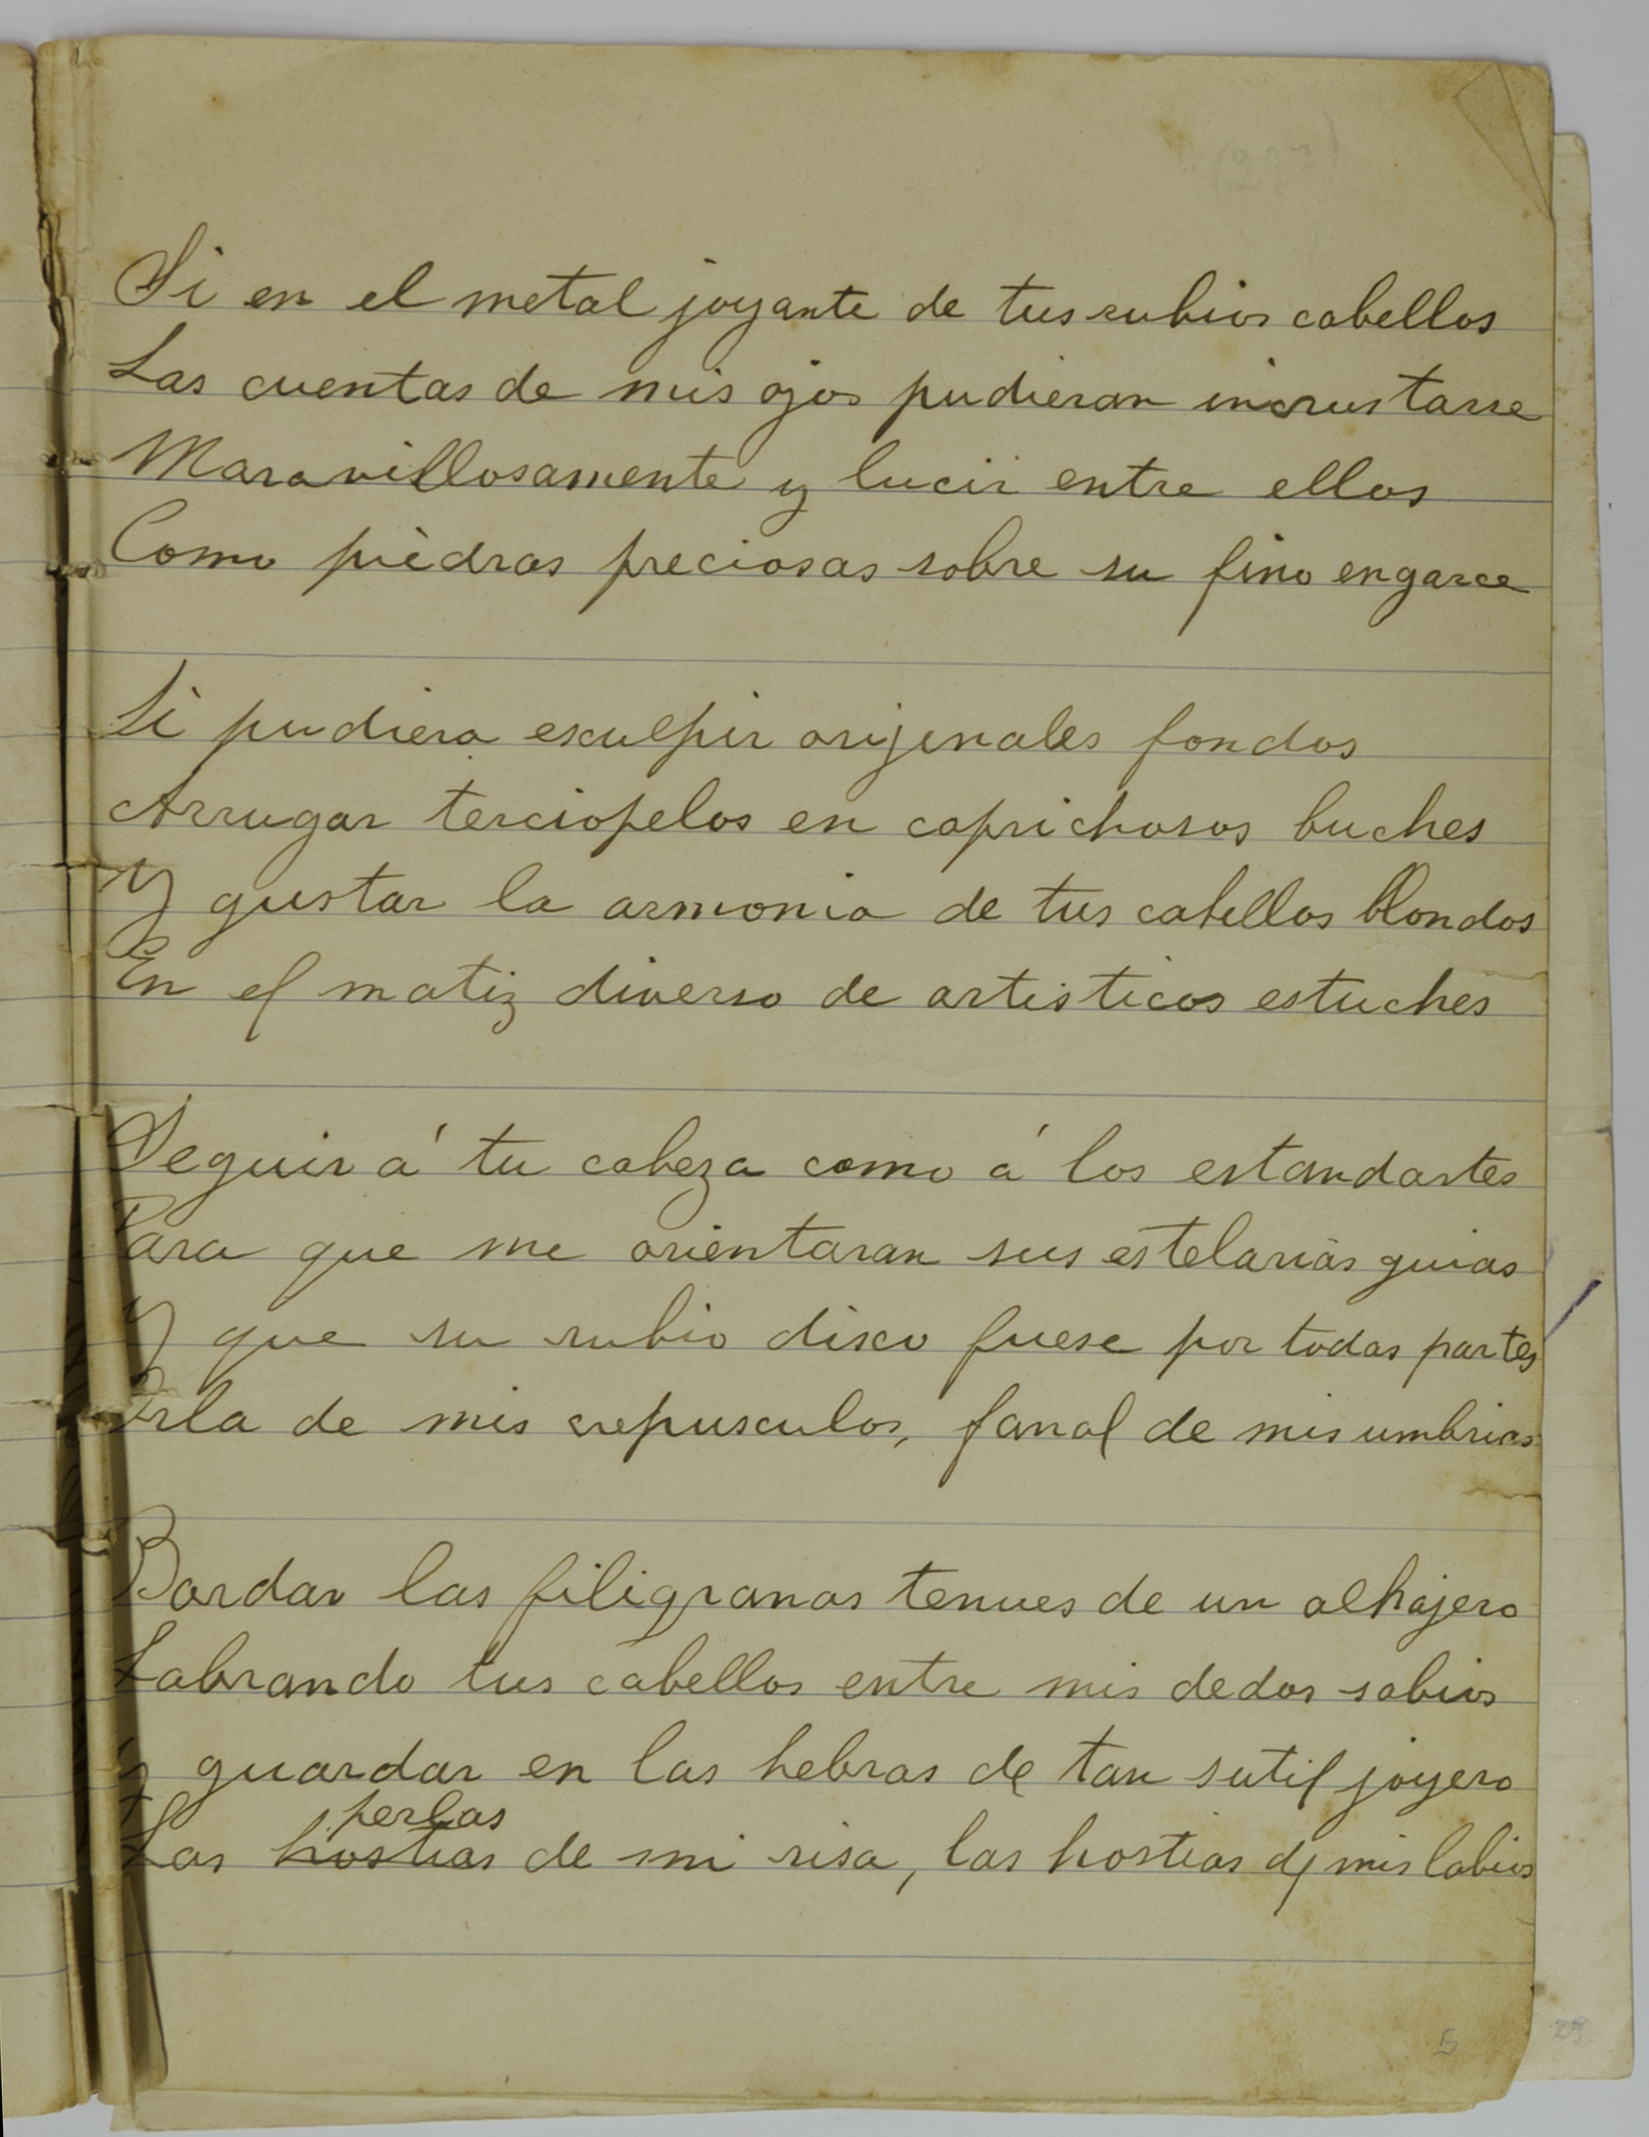 Si en el metal joyante de tus rubios cabellos
Las cuentas de mis ojos pudieran incrustarse
Maravillosamente y lucir entre ellos
Como piedras preciosas sobre su fino engarce
Si pudiera esculpir orijenales fondos
Arrugar terciopelos en caprichosos buches
Y gustar la armonia de tus cabellos blondos
En el matiz diverso de artisticos estuches
Seguir á tu cabeza como á los estandartes
Para que me orientaran sus estelarias guias
Y que su rubio disco fuese por todas partes
Orla de mis crepusculos, fanal de mis umbrias
Bordar las filigranas tenues de un alhajero
Labrando tus cabellos entre mis dedos sabios
Y guardar en las hebras de tan sutil joyero
perlas
Las hostias de mi risa, las hostias de mis labios
5